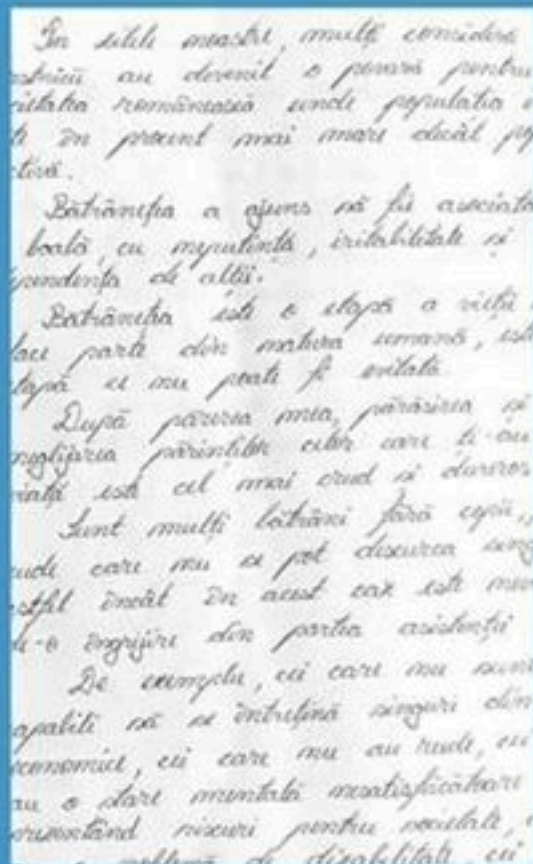 În zilele noastre, mulți consideră
bătrânii au devenit o povară pentru
ietatea românească unde populația
te în prezent mai mare decât pop
ctivă.
Bătrânețea a ajuns să fie asociată
boală, cu neputință, iritabilitate și
ependența de alții.
Bătrânețea este o etapă a vieții
face parte din natura umană, este
etapă ce nu poate fi evitată
După părerea mea, părăsirea și
neglijarea părinților celor care ți-au
viață este cel mai crud și dureros
Sunt mulți bătrâni fără copii,
rude care nu se pot descurca sing
astfel încât în acest caz este nevo
de-o îngrijire din partea asistenței
De exemplu, cei care nu sunt
capabili să se întrețină singuri din
economice, cei care nu au rude, cei
au o stare mentală nesatisfăcătoare
prezentând riscuri pentru societate,
problemă de dizabilitate cei